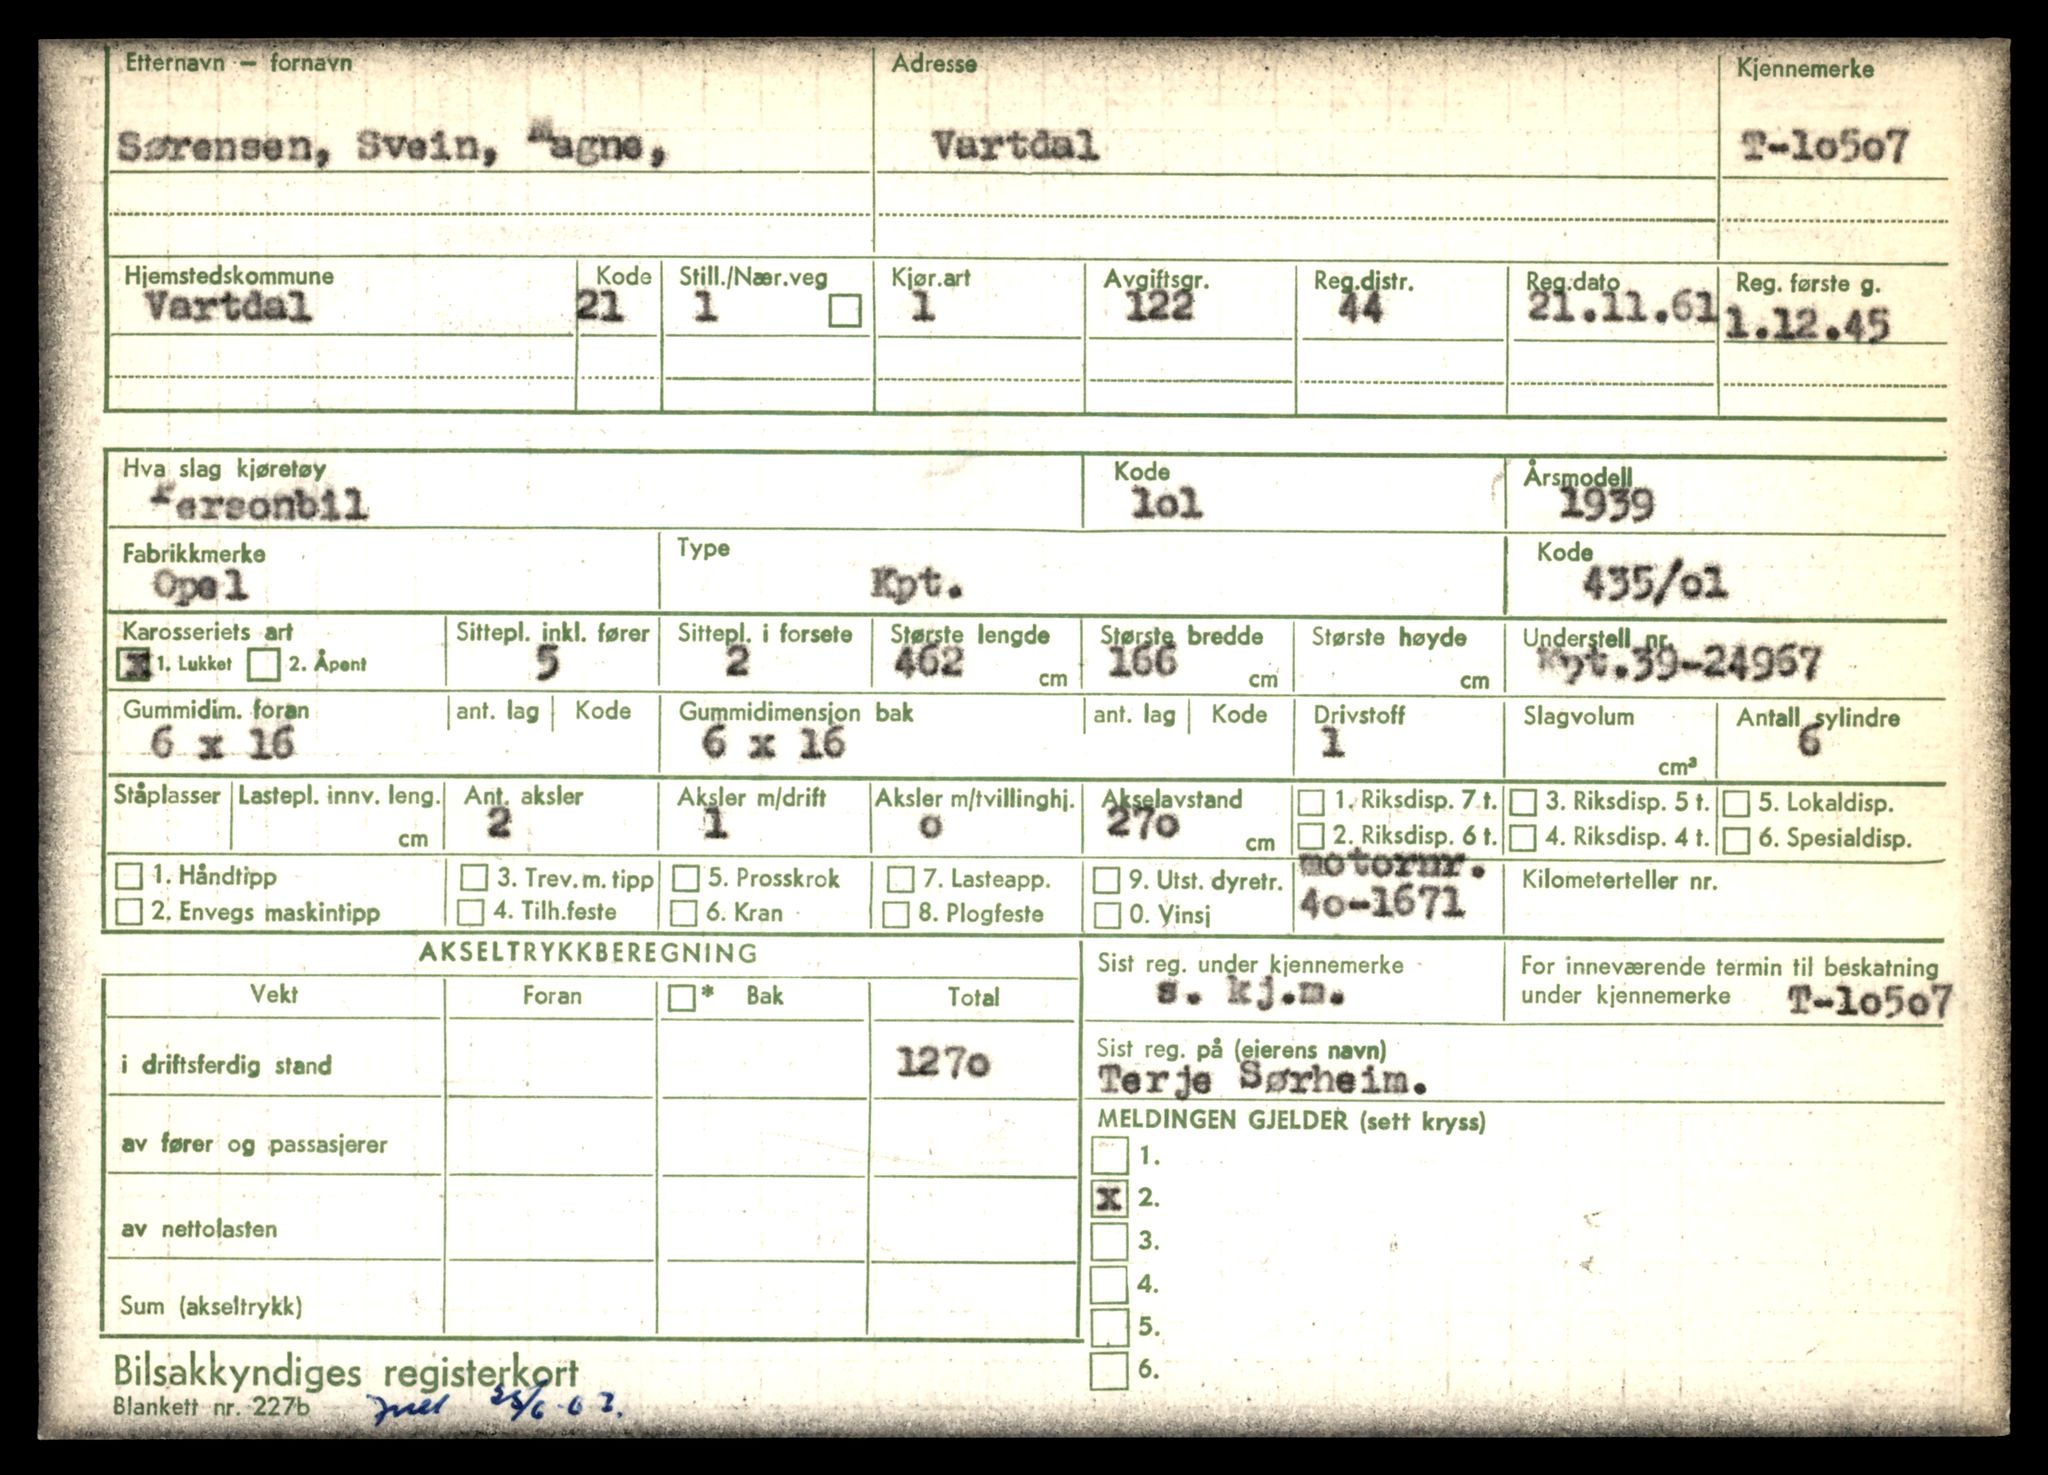 Etternavn – fornavn Adresse Kjennemerke
Sørensen, Svein, Magne, Vartdal T-lo5o7
Hjemstedskommune Kode Still./Nær.veg Kjør.art Avgiftsgr. Reg.distr. Reg.dato Reg. første g.
Vartdal 21 1 1 122 44 21.11.61 1.12.45
Hva slag kjøretøy Kode Årsmodell
Personbil lol 1939
Fabrikkmerke Type Kode
Opel Kpt. 435/ol
Karosseriets art Sittepl. inkl. fører Sittepl. i forsete Største lengde Største bredde Største høyde Understell nr.
x 1. Lukket 2. Åpent 5 2 462 cm 166 cm cm Kpt.39-24967
Gummidim. foran ant. lag Kode Gummidimensjon bak ant. lag Kode Drivstoff Slagvolum Antall sylindre
6 x 16 6 x 16 1 cm³ 6
Ståplasser Lastepl. innv. leng. Ant. aksler Aksler m/drift Aksler m/tvillinghj. Akselavstand 1. Riksdisp. 7 t. 3. Riksdisp. 5 t. 5. Lokaldisp.
cm 2 1 o 27o cm 2. Riksdisp. 6 t. 4. Riksdisp. 4 t. 6. Spesialdisp.
1. Håndtipp 3. Trev. m. tipp 5. Prosskrok 7. Lasteapp. 9. Utst. dyretr. motornr. Kilometerteller nr.
2. Envegs maskintipp 4. Tilh.feste 6. Kran 8. Plogfeste 0. Vinsj 4o-1671
AKSELTRYKKBEREGNING
Sist reg. under kjennemerke For inneværende termin til beskatning
s. kj.m. under kjennemerke T-lo5o7
Vekt Foran * Bak Total
i driftsferdig stand 127o
Sist reg. på (eierens navn)
Terje Sørheim.
av fører og passasjerer
av nettolasten
Sum (akseltrykk)
MELDINGEN GJELDER (sett kryss)
1.
x 2.
3.
4.
5.
6.
Bilsakkyndiges registerkort
Blankett nr. 227b